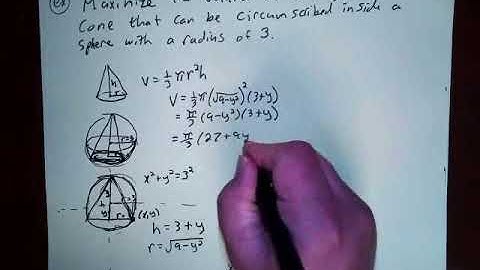 ex) Maximize
cone that can be circumscribed inside a
sphere with a radius of 3.
h
r
V = 1/3 πr²h
V = 1/3 π(√9-y²)²(3+y)
= π/3 (9-y²)(3+y)
= π/3 (27+9y
r=3
x²+y²=3²
3
r=3
y
r
(x,y)
h = 3+y
r = √9-y²